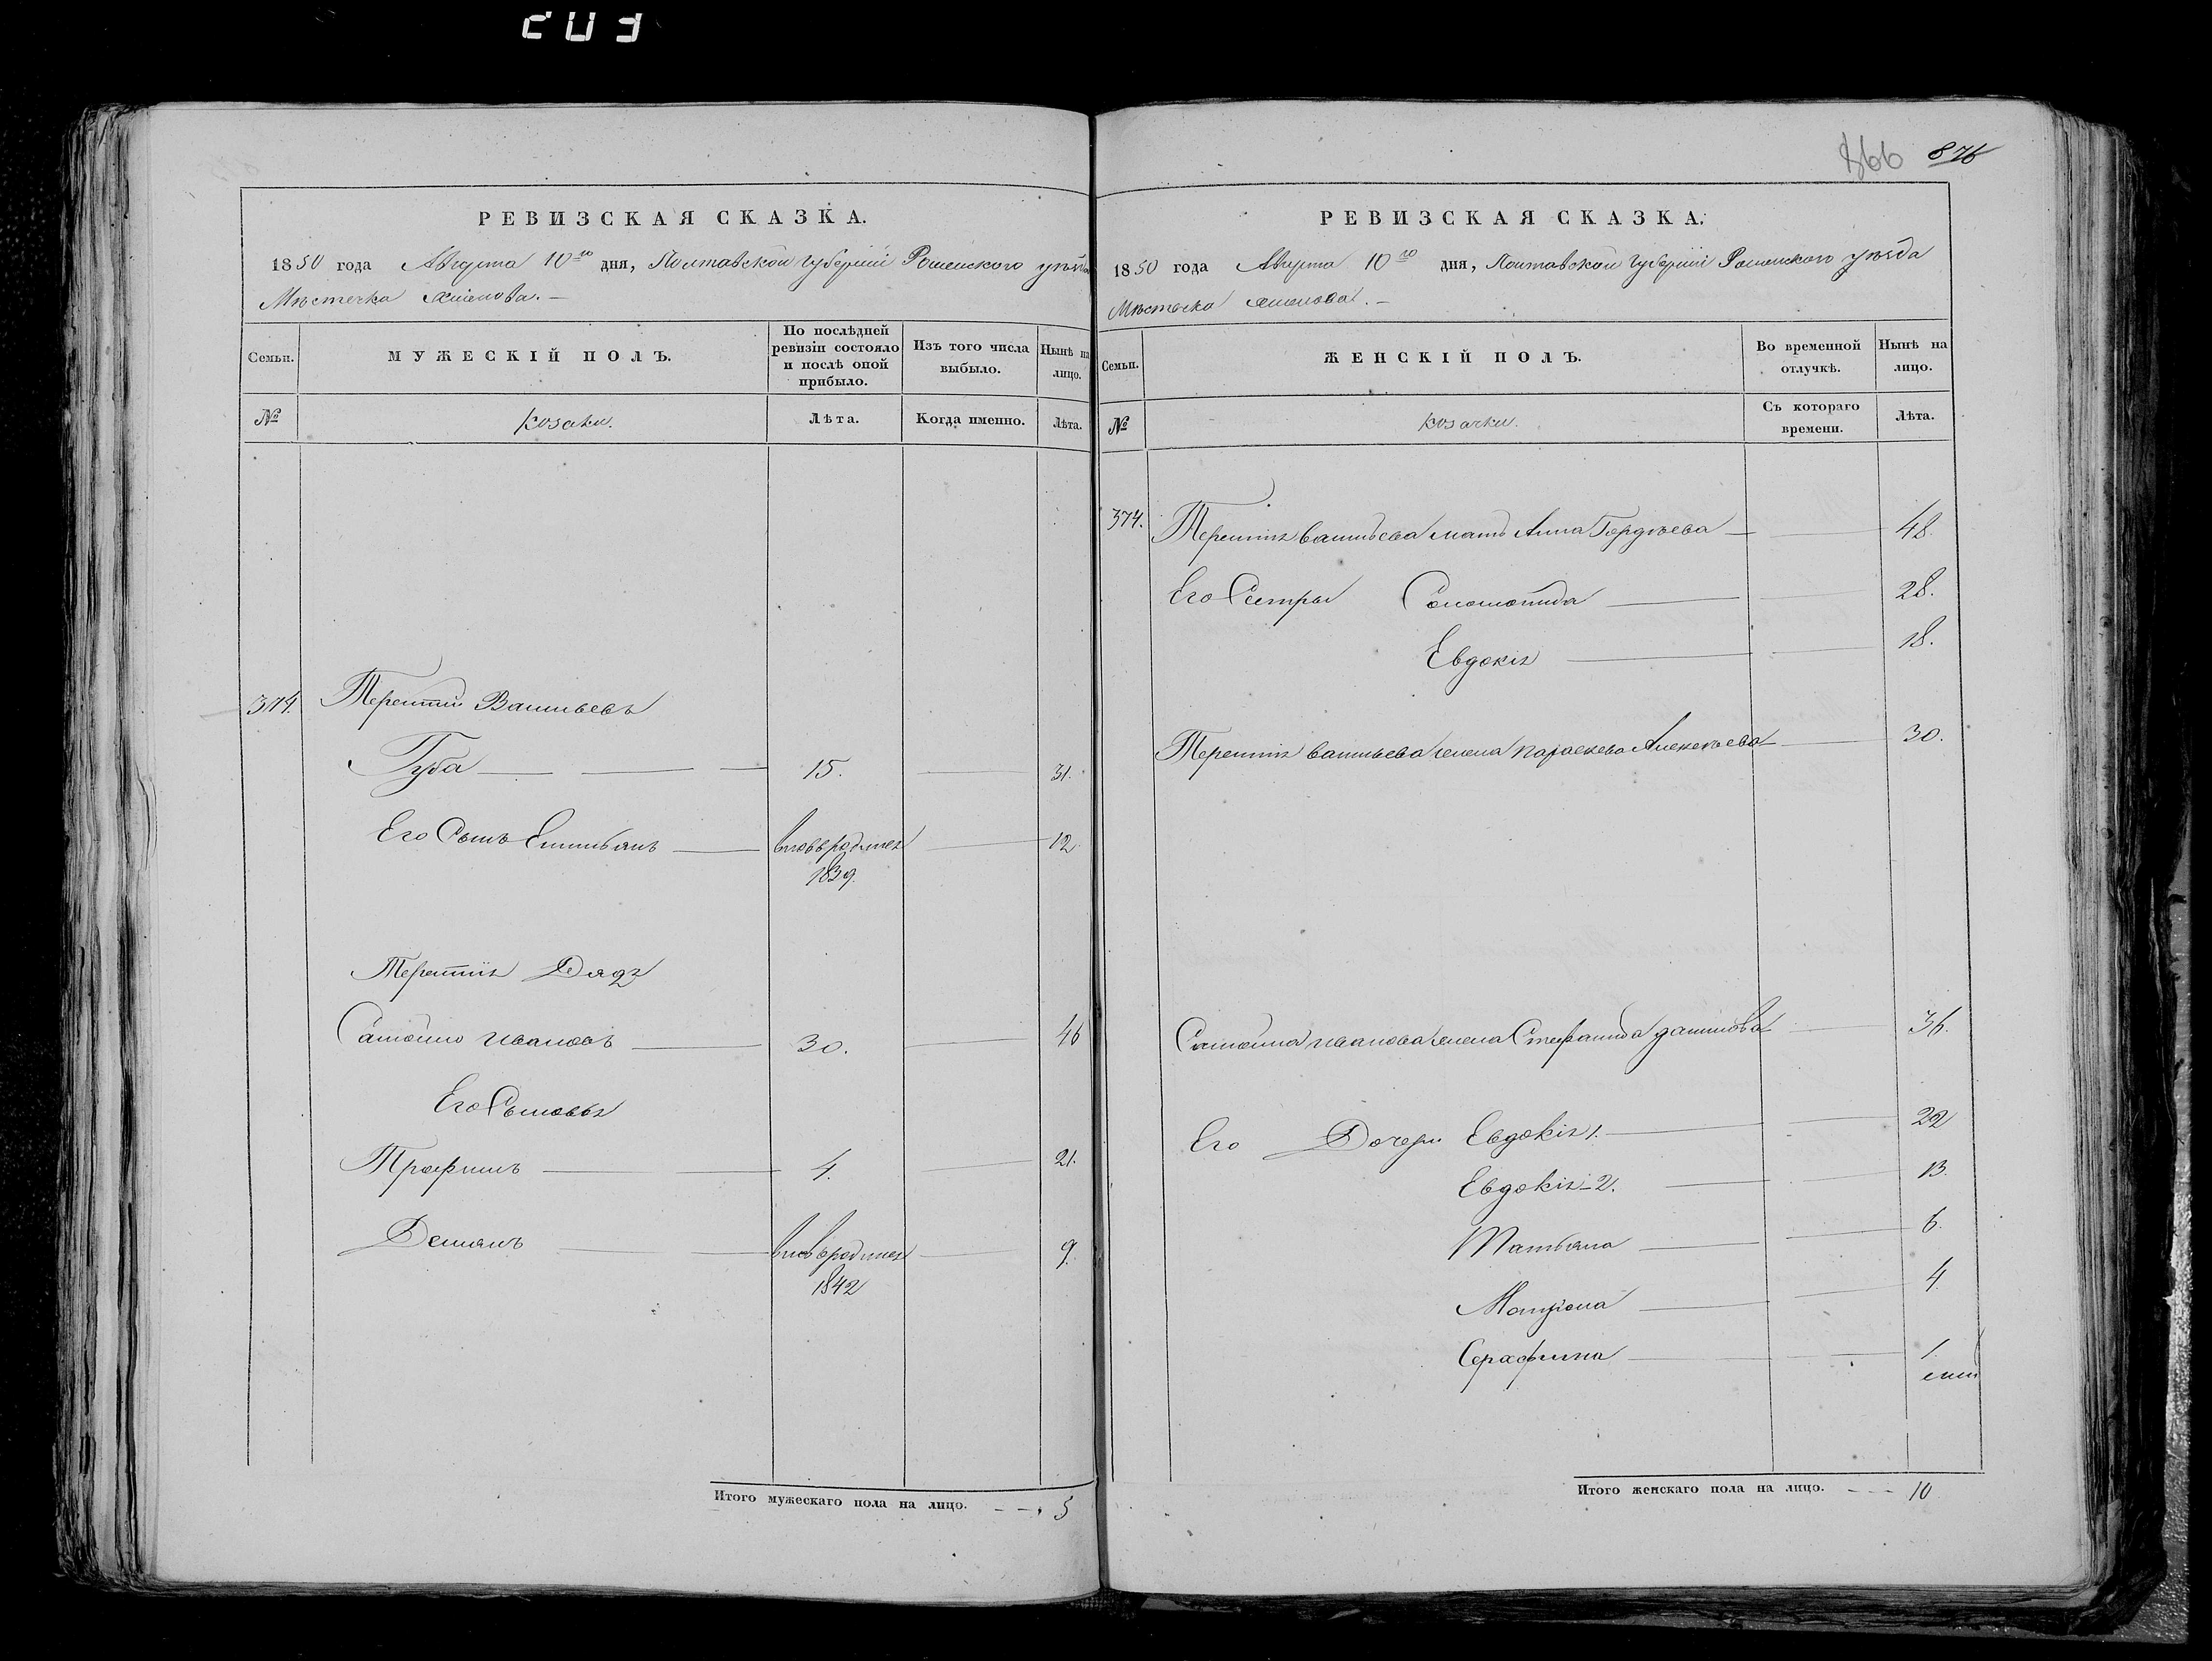 203
866 876
РЕВИЗСКАЯ СКАЗКА.
1850 года Августа 10го дня, Полтавской губерніи Роменского уѣзда
Мѣстечка
Семьи. МУЖЕСКІЙ ПОЛЪ. По послѣдней ревизіи состояло и послѣ оной прибыло. Изъ того числа выбыло. Нынѣ на лицо.
№ козаки. Лѣта. Когда именно. Лѣта.
374. Терентій Васильевъ
Губа 15. 31.
Его Сынъ Емильянъ вновь родился 12
1839.
Терентія Дядя
Самойло Ивановъ 30. 46
Его Сыновья
Трофимъ 4. 21.
Демянъ вновь родился 9.
1842
Итого мужескаго пола на лицо. 5
РЕВИЗСКАЯ СКАЗКА.
1850 года Августа 10го дня, Полтавской губерніи Роменского уѣзда
Мѣстечка
Семьи. ЖЕНСКІЙ ПОЛЪ. Во временной отлучкѣ. Нынѣ на лицо.
№ козачки. Съ котораго времени. Лѣта.
374. Терентія Васильева мать Анна Гордѣева 48.
Его Сестры Соломонида 28.
Евдокія 18.
Терентія Васильева жена Параскева Алексѣева 30.
Самойла Иванова жена Стефанида 36.
Его Дочери Евдокія 1. 22
Евдокія-2. 13.
Татьяна 6.
Матрона 4.
Серафима 1
Итого женскаго пола на лицо. 10